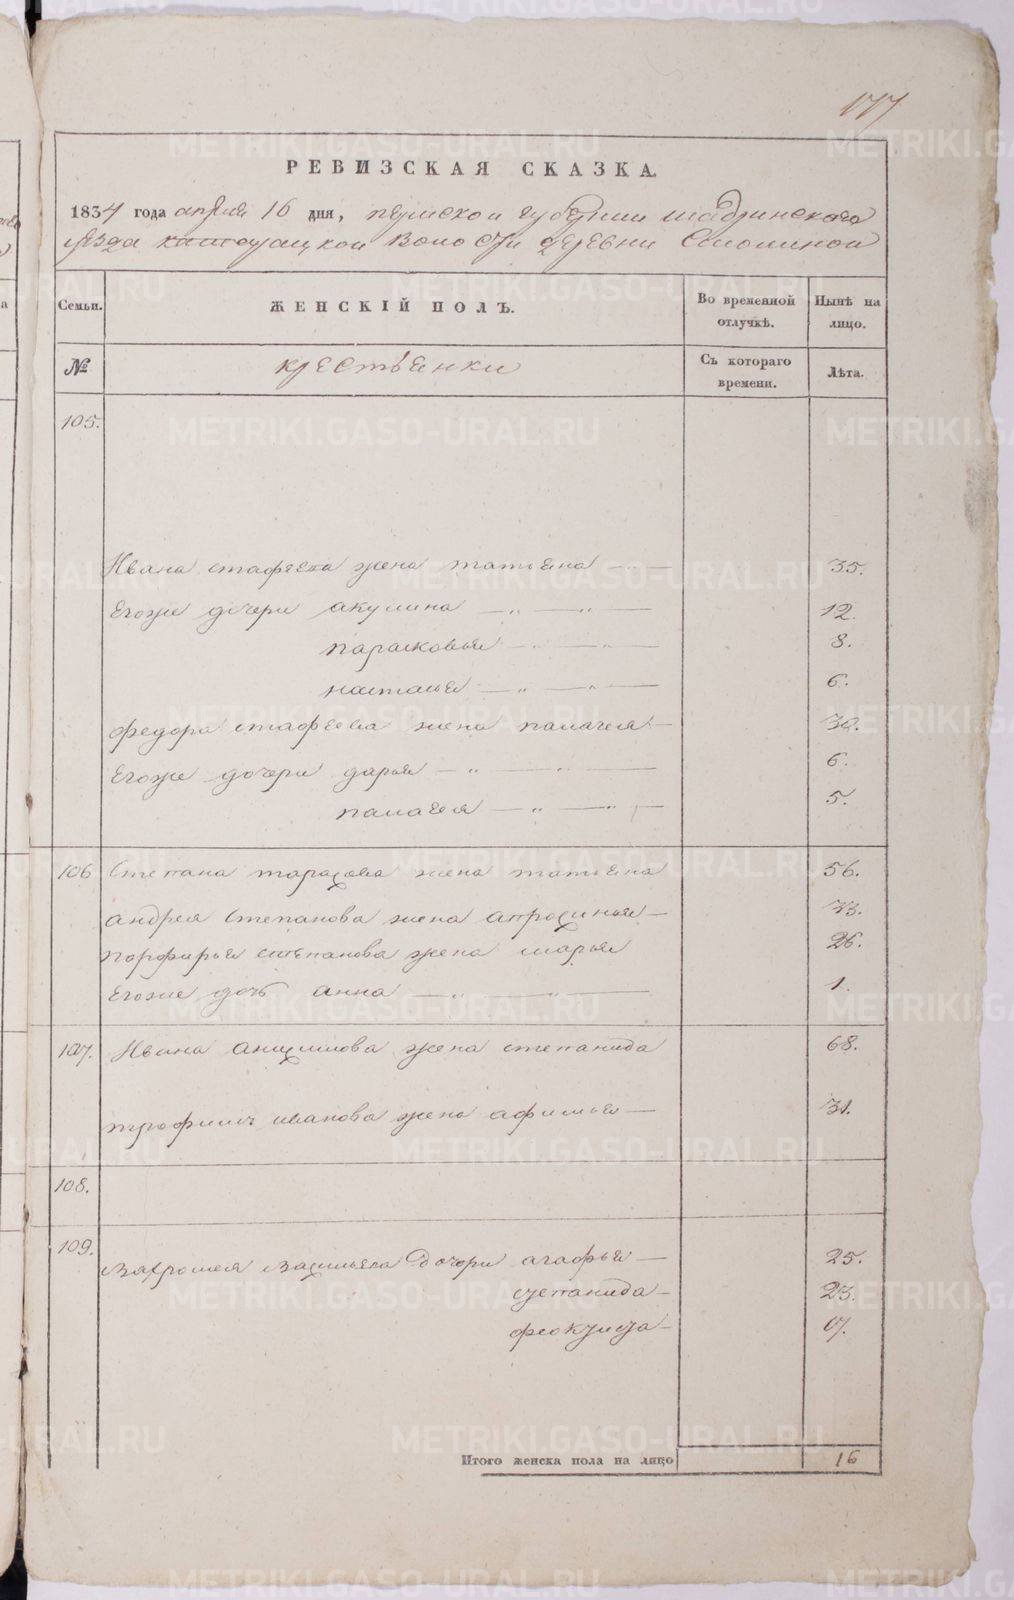 177
РЕВИЗСКАЯ СКАЗКА.
1834 года апреля 16 дня, пермской губернии шадринского
уезда волости деревни
Семьи.
ЖЕНСКІЙ ПОЛЪ.
Во временной отлучкѣ.
Нынѣ на лицо.
№
крестьенки
Съ котораго времени.
Лѣта.
105.
Ивана стафеева жена татьена — 35.
Егоже дочери акулина — „ — „ — 12.
парасковья — „ — „ — 8.
настасья — „ — „ — 6.
федора стафеева жена палагея — 30.
Егоже дочери дарья — „ — „ — 6.
палагея — „ — „ — 5.
106 Степана тарасова жена татьена 56.
андрея степанова жена апросинья — 33.
порфирья степанова жена марья 26.
Егоже дочь анна — „ — „ — 1.
107. Ивана анисимова жена степанида 68.
трофима иванова жена афимья — 31.
108.
109.
вахромея васильева дочери агафья — 25.
степанида — 23.
феоктиста — 17.
Итого женска пола на лицо 16
METRIKI.GASO-URAL.RU